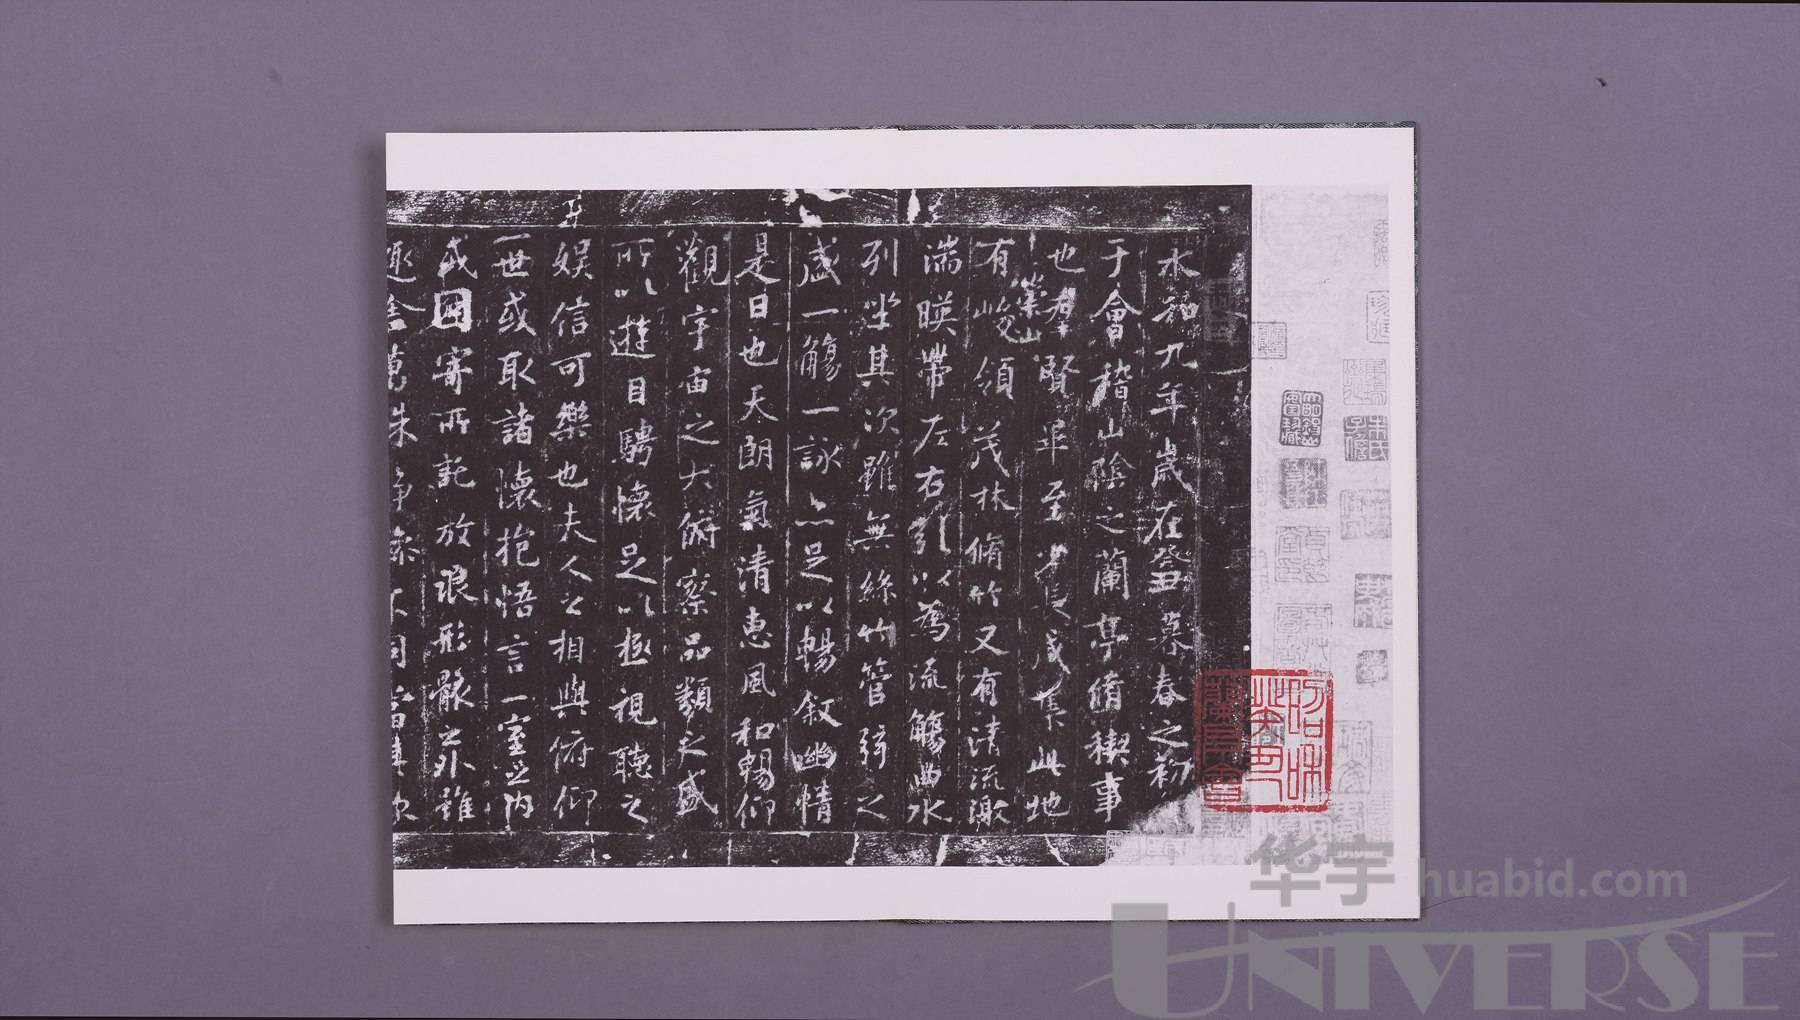 永和九年歲在癸丑暮春之初會
于會稽山陰之蘭亭脩稧事
也群賢畢至少長咸集此地
有崇山峻領茂林脩竹又有清流激
湍暎帶左右引以為流觴曲水
列坐其次雖無絲竹管弦之
盛一觴一詠亦足以暢敘幽情
是日也天朗氣清惠風和暢仰
觀宇宙之大俯察品類之盛
所以遊目騁懷足以極視聽之
娛信可樂也夫人之相與俯仰
一世或取諸懷抱悟言一室之內
或因寄所託放浪形骸之外雖
趣舍萬殊靜躁不同當其欣
华宇 huabid.com
UNIVERSE